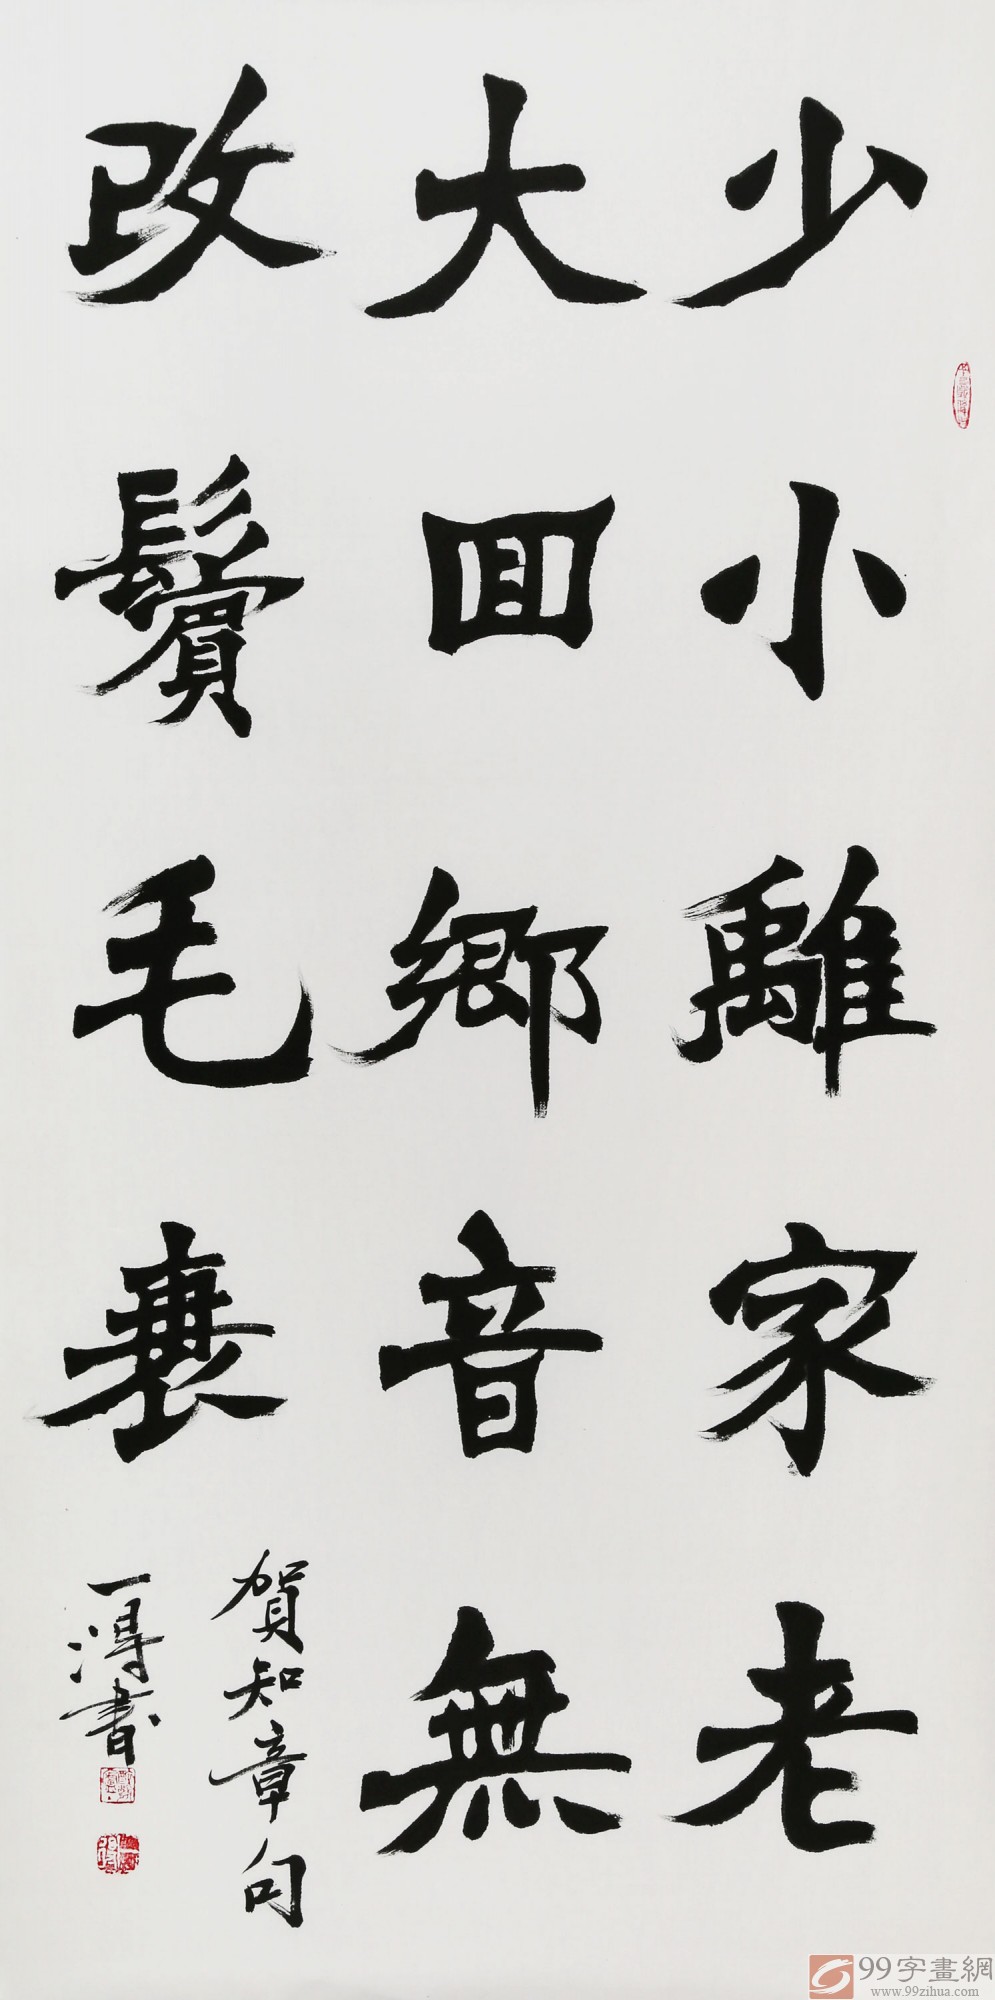 少小離家老
大回鄉音無
改鬢毛衰
賀知章句
一得書
99字畫網
www.99zihua.com